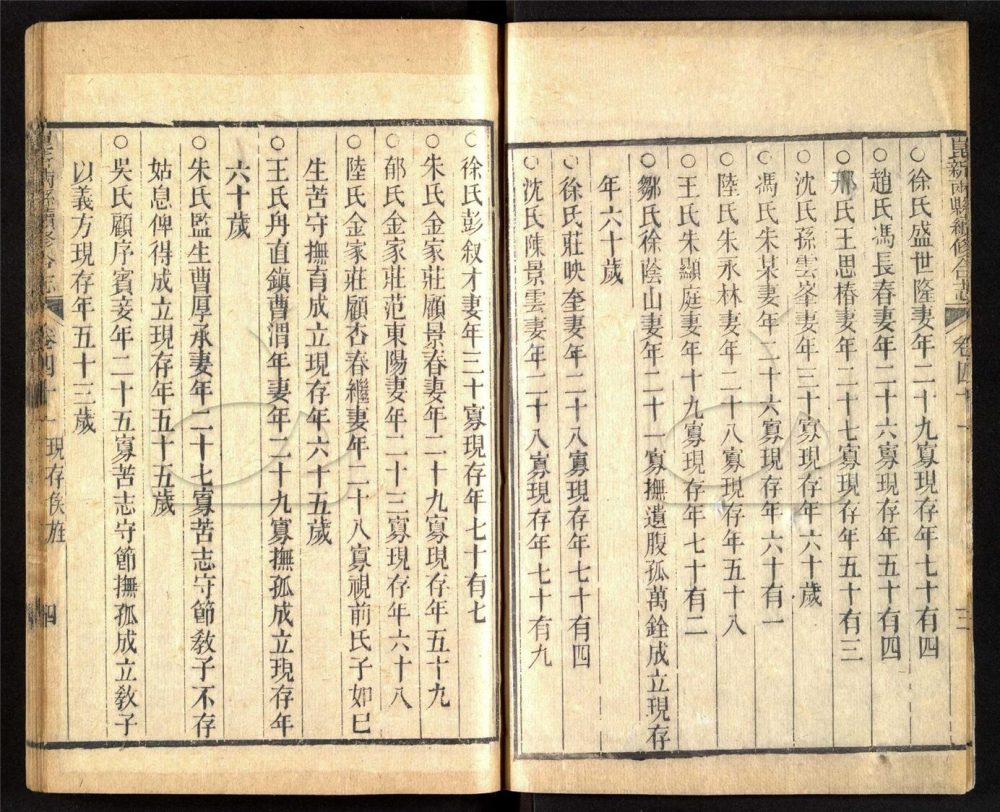 崑新兩縣續修合志 卷四十一 三
○徐氏盛世隆妻年二十九寡現存年七十有四
○趙氏馮長春妻年二十六寡現存年五十有四
○邢氏王思椿妻年二十七寡現存年五十有三
○沈氏孫雲峯妻年三十寡現存年六十歲
○馮氏朱某妻年二十六寡現存年六十有一
○陸氏朱永林妻年二十八寡現存年五十八
○王氏朱顯庭妻年十九寡現存年七十有二
○鄒氏徐蔭山妻年二十一寡撫遺腹孤萬銓成立現存
年六十歲
○徐氏莊映奎妻年二十八寡現存年七十有四
○沈氏陳景雲妻年二十八寡現存年七十有九
○徐氏彭叙才妻年三十寡現存年七十有七
○朱氏金家莊顧景春妻年二十九寡現存年五十九
○郁氏金家莊范東陽妻年二十三寡現存年六十八
○陸氏金家莊顧杏春繼妻年二十八寡視前氏子如已
生苦守撫育成立現存年六十五歲
○王氏甪直鎮曹渭年妻年二十九寡撫孤成立現存年
六十歲
○朱氏監生曹厚承妻年二十七寡苦志守節教子不存
姑息俾得成立現存年五十五歲
○吳氏顧序賓妾年二十五寡苦志守節撫孤成立教子
以義方現存年五十三歲
崑新兩縣續修合志 卷四十一 現存俟旌 四